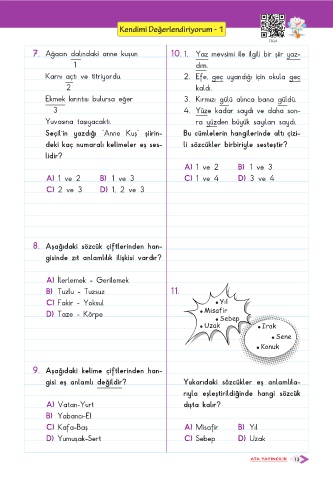 Kendimi Değerlendiriyorum - 1
7. Ağacın dalındaki anne kuşun
1
Karnı açtı ve titriyordu.
2
Ekmek kırıntısı bulursa eğer
3
Yuvasına taşıyacaktı.
Seçil'in yazdığı "Anne Kuş" şiirin-
deki kaç numaralı kelimeler eş ses-
lidir?
A) 1 ve 2 B) 1 ve 3
C) 2 ve 3 D) 1, 2 ve 3
8. Aşağıdaki sözcük çiftlerinden han-
gisinde zıt anlamlılık ilişkisi vardır?
A) İlerlemek - Gerilemek
B) Tuzlu - Tuzsuz
C) Fakir - Yoksul
D) Taze - Körpe
9. Aşağıdaki kelime çiftlerinden han-
gisi eş anlamlı değildir?
A) Vatan-Yurt
B) Yabancı-El
C) Kafa-Baş
D) Yumuşak-Sert
10. 1. Yaz mevsimi ile ilgili bir şiir yaz-
dım.
2. Efe, geç uyandığı için okula geç
kaldı.
3. Kırmızı gülü alınca bana güldü.
4. Yüze kadar saydı ve daha son-
ra yüzden büyük sayıları saydı.
Bu cümlelerin hangilerinde altı çizi-
li sözcükler birbiriyle sesteştir?
A) 1 ve 2 B) 1 ve 3
C) 1 ve 4 D) 3 ve 4
11.
• Yıl
• Misafir
• Sebep
• Uzak
• Irak
• Sene
• Konuk
Yukarıdaki sözcükler eş anlamlıla-
rıyla eşleştirildiğinde hangi sözcük
dışta kalır?
A) Misafir B) Yıl
C) Sebep D) Uzak
ATA YAYINCILIK 13